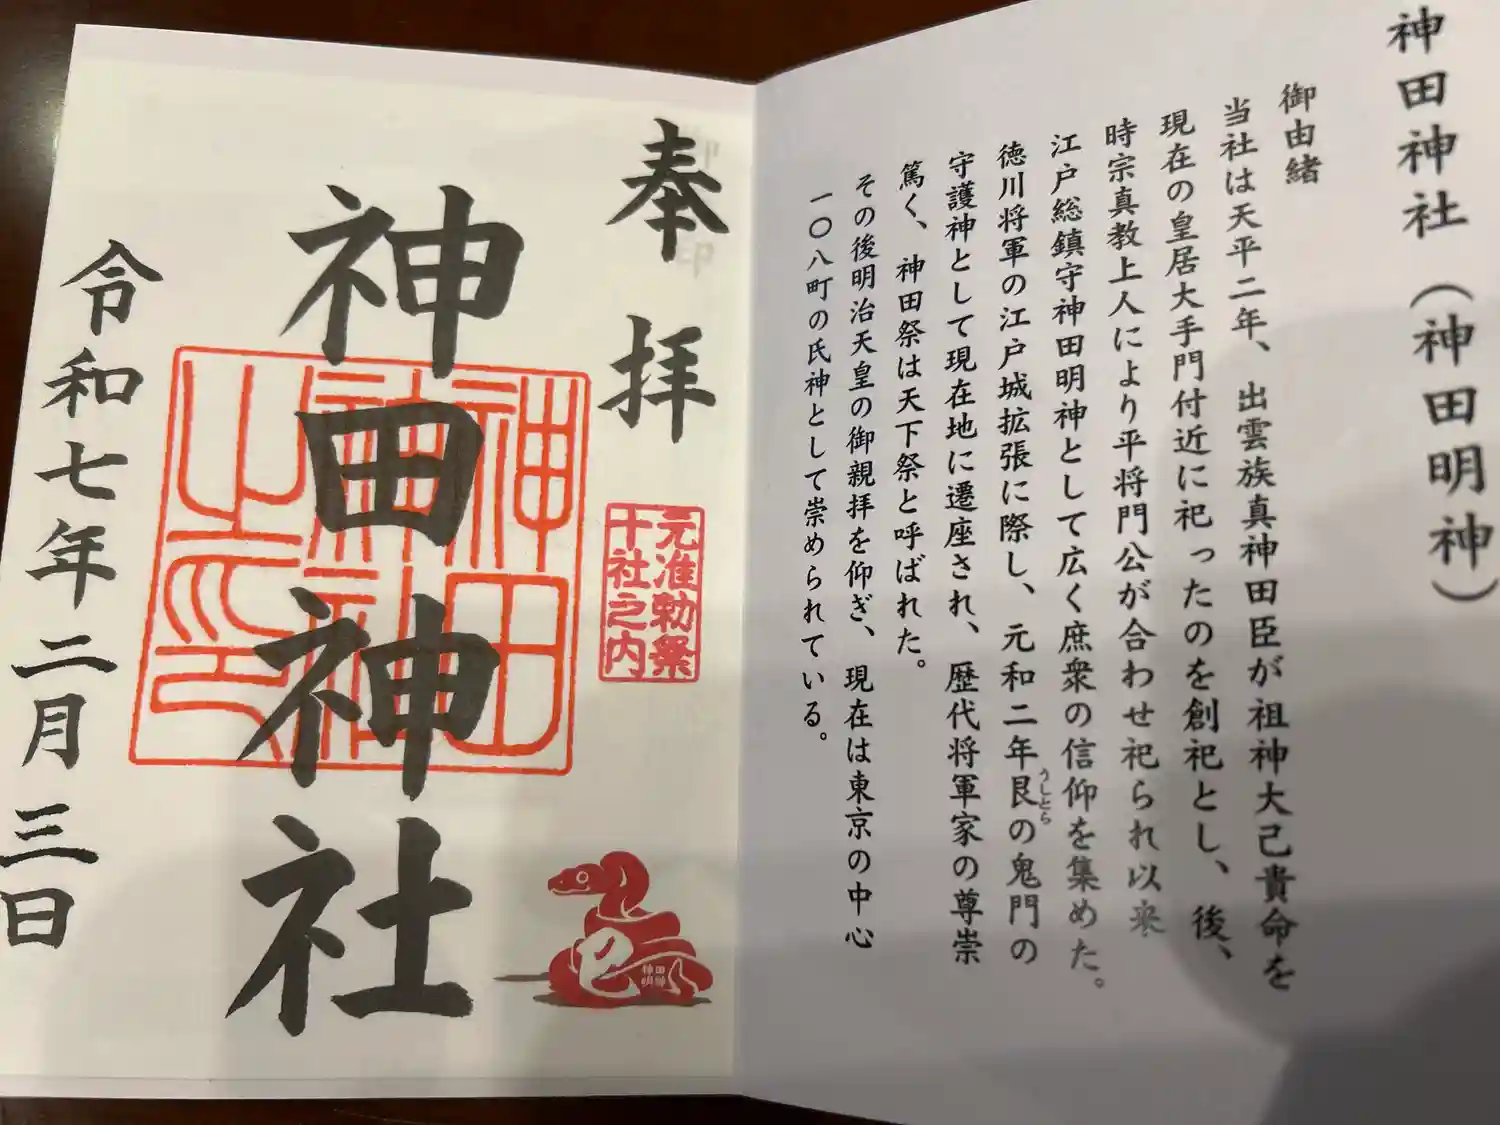 神田神社(神田明神)
御由緒
当社は天平二年、出雲族真神田臣が祖神大己貴命を
現在の皇居大手門付近に祀ったのを創祀とし、後、
時宗真教上人により平将門公が合わせ祀られ以来
江戸総鎮守神田明神として広く庶衆の信仰を集めた。
徳川将軍の江戸城拡張に際し、元和二年艮の鬼門の
うしとら
守護神として現在地に遷座され、歴代将軍家の尊崇
篤く、神田祭は天下祭と呼ばれた。
その後明治天皇の御親拝を仰ぎ、現在は東京の中心
一〇八町の氏神として崇められている。
奉拝
元准勅祭
十社之内
神田神社
神田
神社
之印
令和七年二月三日
巳
神田
明神